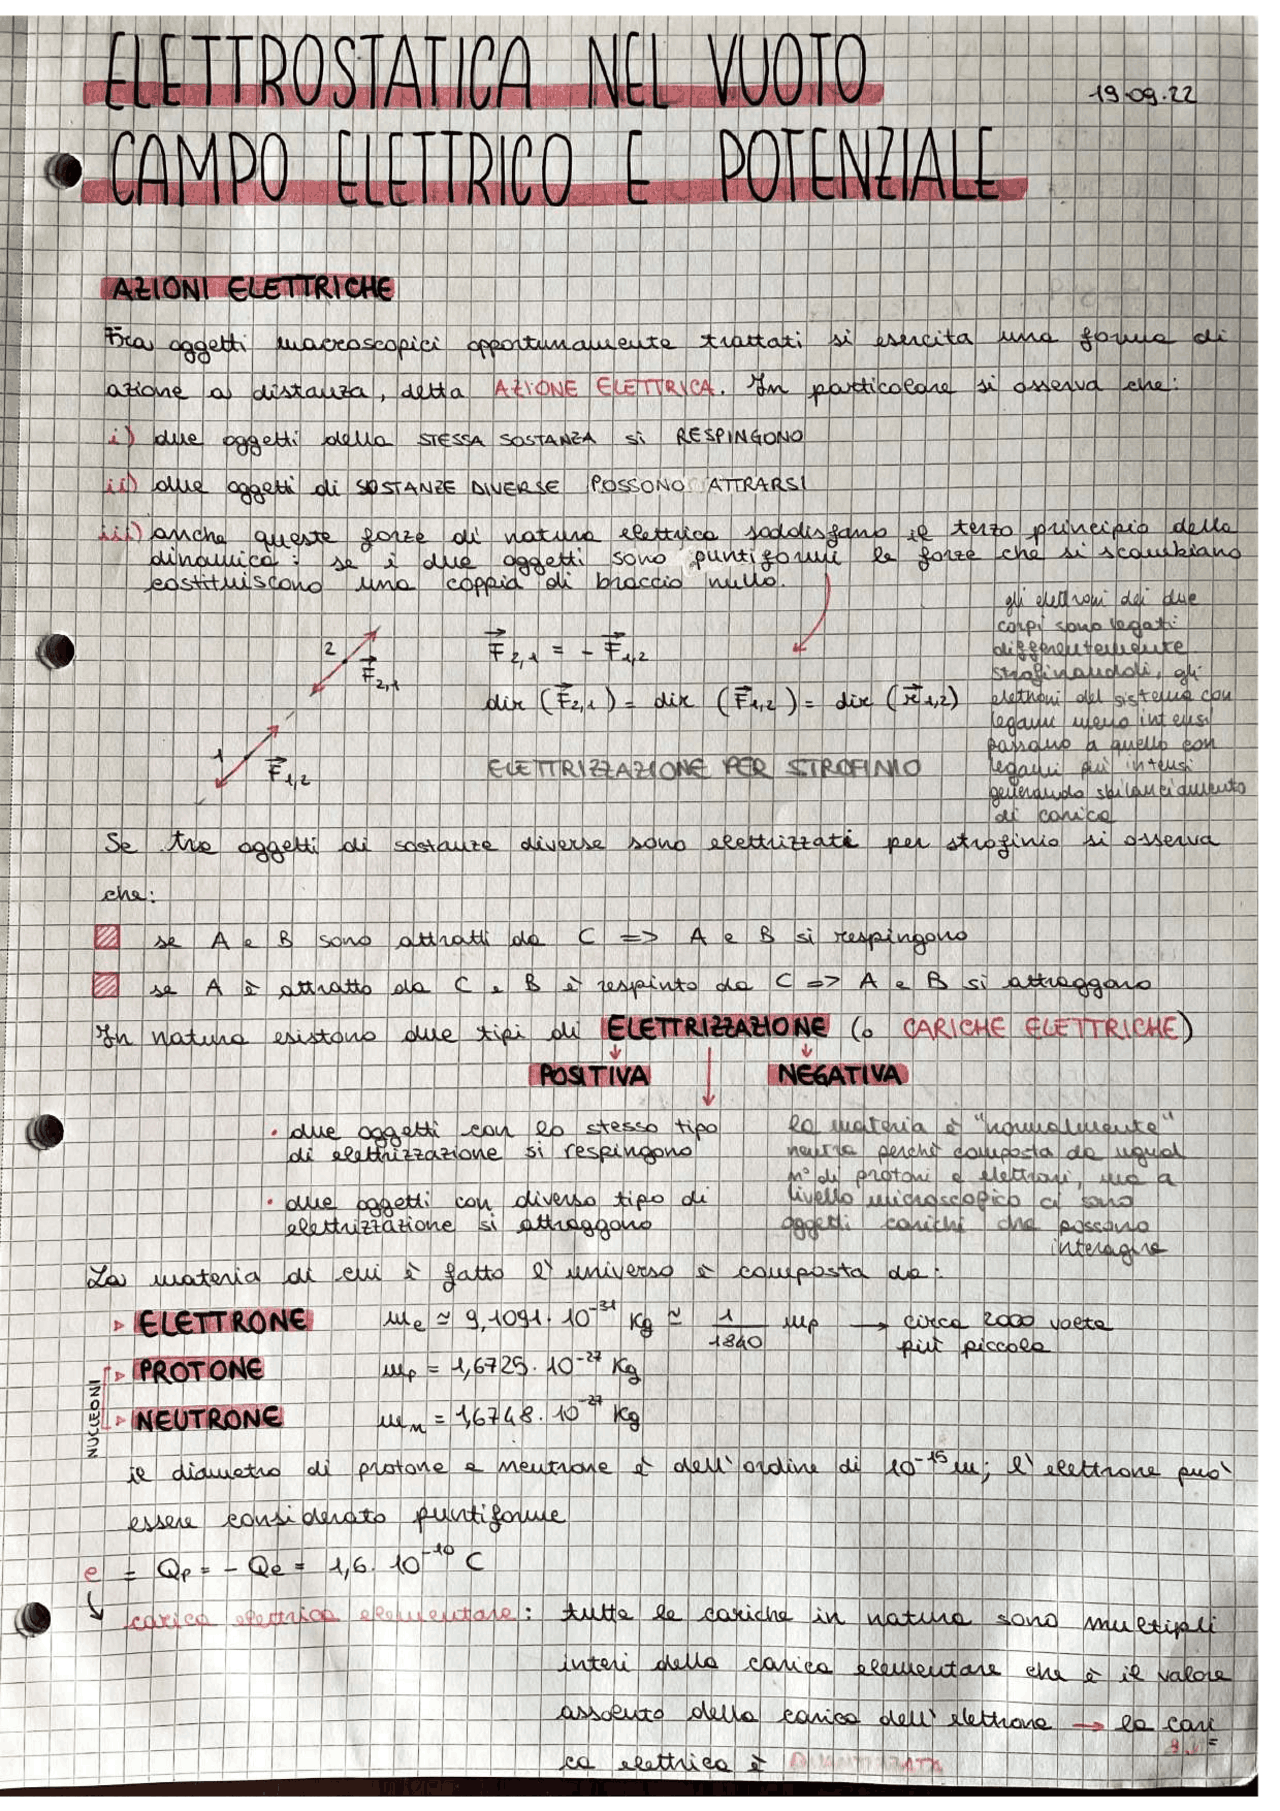 ELETTROSTATICA NEL VUOTO
19.09.22
CAMPO ELETTRICO E POTENZIALE
AZIONI ELETTRICHE
Fra oggetti macroscopici opportunamente trattati si esercita una forma di
azione a distanza, detta AZIONE ELETTRICA. In particolare si osserva che:
i) due oggetti della STESSA SOSTANZA si RESPINGONO
ii) due oggetti di SOSTANZE DIVERSE POSSONO ATTRARSI
iii) anche queste forze di natura elettrica soddisfano il terzo principio della
dinamica: se i due oggetti sono puntiformi le forze che si scambiano
costituiscono una coppia di braccio nullo.
gli elettroni dei due
corpi sono legati
differentemente
strofinandoli, gli
elettroni del sistema con
legami meno intensi
passano a quello con
legami più intensi
generando sbilanciamento
di carica
2 F⃗2,1
1 F⃗1,2
F⃗2,1 = - F⃗1,2
dir (F⃗2,1) = dir (F⃗1,2) = dir (r⃗1,2)
ELETTRIZZAZIONE PER STROFINIO
Se tre oggetti di sostanze diverse sono elettrizzati per strofinio si osserva
che:
se A e B sono attratti da C => A e B si respingono
se A è attratto da C e B è respinto da C => A e B si attraggono
In natura esistono due tipi di ELETTRIZZAZIONE (o CARICHE ELETTRICHE)
POSITIVA NEGATIVA
• due oggetti con lo stesso tipo
di elettrizzazione si respingono
• due oggetti con diverso tipo di
elettrizzazione si attraggono
la materia è "normalmente"
neutra perché composta da ugual
n° di protoni e elettroni, ma a
livello microscopico ci sono
oggetti carichi che possono
interagire
La materia di cui è fatto l'universo è composta da:
▷ ELETTRONE me ≃ 9,1091·10⁻³¹ Kg ≃ 1/1840 mp → circa 2000 volte
più piccola
▷ PROTONE mp = 1,6725·10⁻²⁷ Kg
▷ NEUTRONE mn = 1,6748·10⁻²⁷ Kg
NUCLEONI
il diametro di protone e neutrone è dell'ordine di 10⁻¹⁵ m; l'elettrone può
essere considerato puntiforme
e = Qp = - Qe = 1,6·10⁻¹⁰ C
↳ carica elettrica elementare: tutte le cariche in natura sono multipli
interi della carica elementare che è il valore
assoluto della carica dell'elettrone → la cari
ca elettrica è QUANTIZZATA